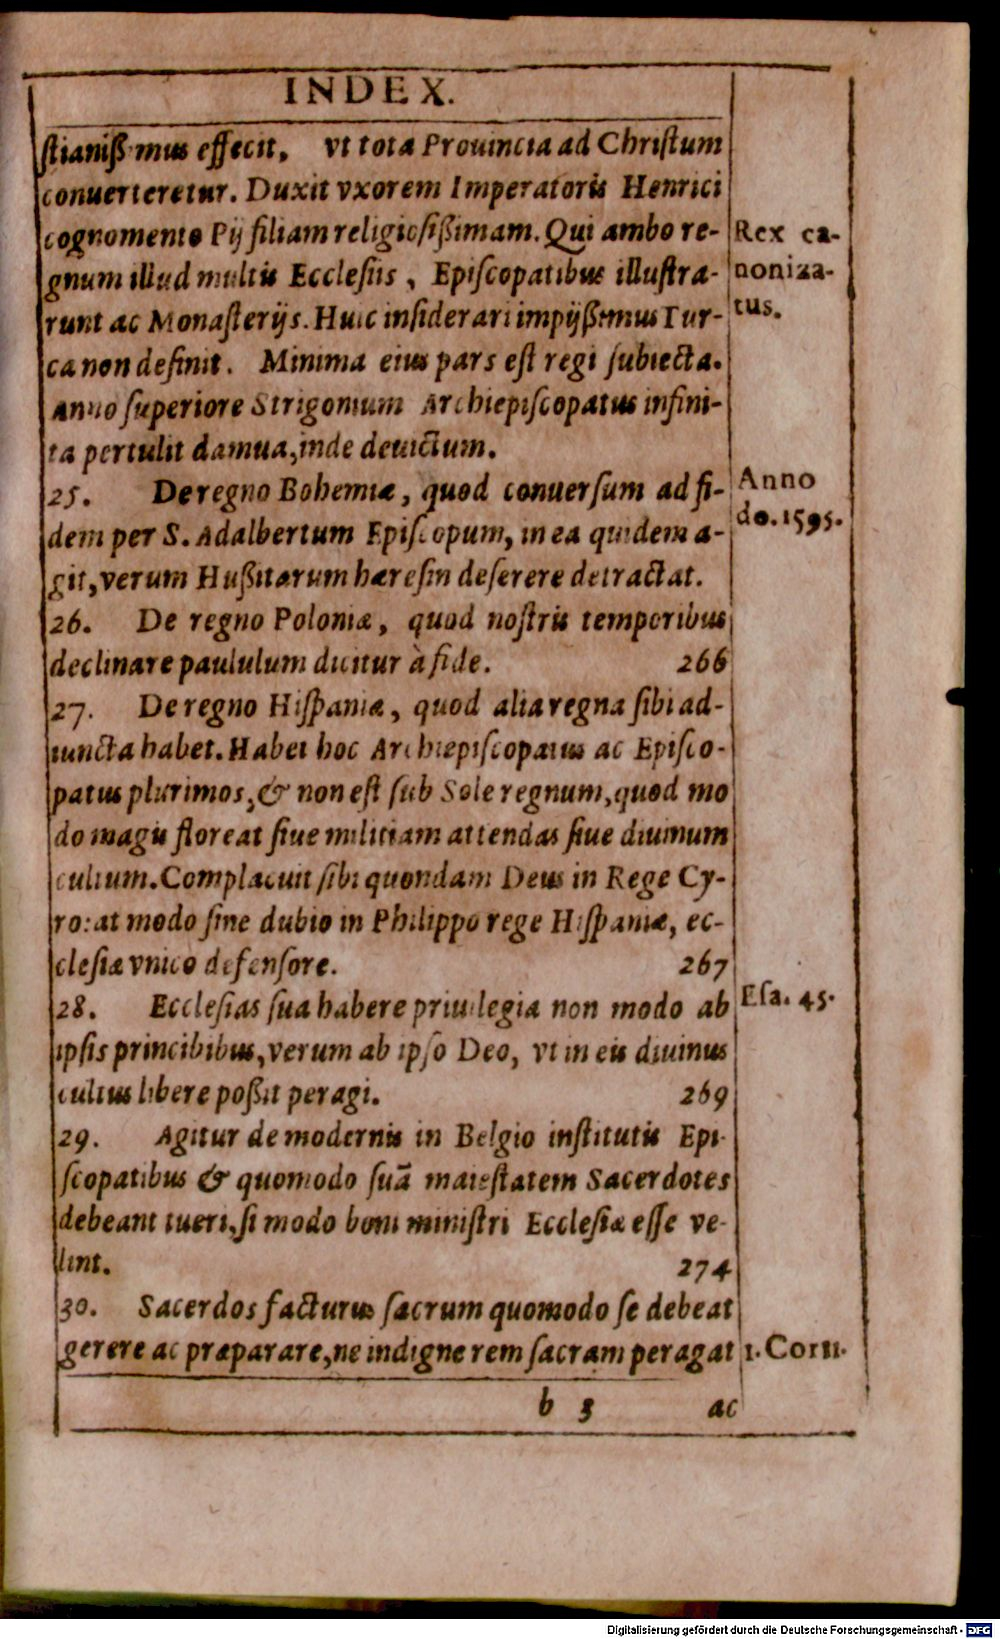 INDEX.
stianißimus effecit, vt tota Prouincia ad Christum
conuerteretur. Duxit vxorem Imperatoris Henrici
cognomento Pij filiam religiosißimam. Qui ambo re-
Rex ca-
gnum illud multis Ecclesiis, Episcopatibus illustra-
noniza-
runt ac Monasterijs. Huic insiderari impijßimus Tur-
tus.
ca non definit. Minima eius pars est regi subiecta.
Anno superiore Strigonium Archiepiscopatus infini-
ta pertulit damua, inde deuictum.
25. De regno Bohemiæ, quod conuersum ad fi-
Anno
dem per S. Adalbertum Episcopum, in ea quidem a-
do. 1595.
git, verum Hußitarum hæresin deserere detractat.
26. De regno Poloniæ, quod nostris temporibus
declinare paululum dicitur à fide. 266
27. De regno Hispaniæ, quod alia regna sibi ad-
iuncta habet. Habet hoc Archiepiscopatus ac Episco-
patus plurimos, & non est sub Sole regnum, quod mo
do magis floreat siue militiam attendas siue diuinum
cultum. Complacuit sibi quondam Deus in Rege Cy-
ro: at modo sine dubio in Philippo rege Hispaniæ, ec-
clesiæ vnico defensore. 267
Esa. 45.
28. Ecclesias sua habere priuilegia non modo ab
ipsis princibibus, verum ab ipso Deo, vt in eis diuinus
cultus libere poßit peragi. 269
29. Agitur de modernis in Belgio institutis Epi-
scopatibus & quomodo suā maiestatem Sacerdotes
debeant tueri, si modo boni ministri Ecclesiæ esse ve-
lint. 274
30. Sacerdos facturus sacrum quomodo se debeat
gerere ac præparare, ne indigne rem sacram peragat
1. Cor 11.
b 3 ac
Digitalisierung gefördert durch die Deutsche Forschungsgemeinschaft - DFG